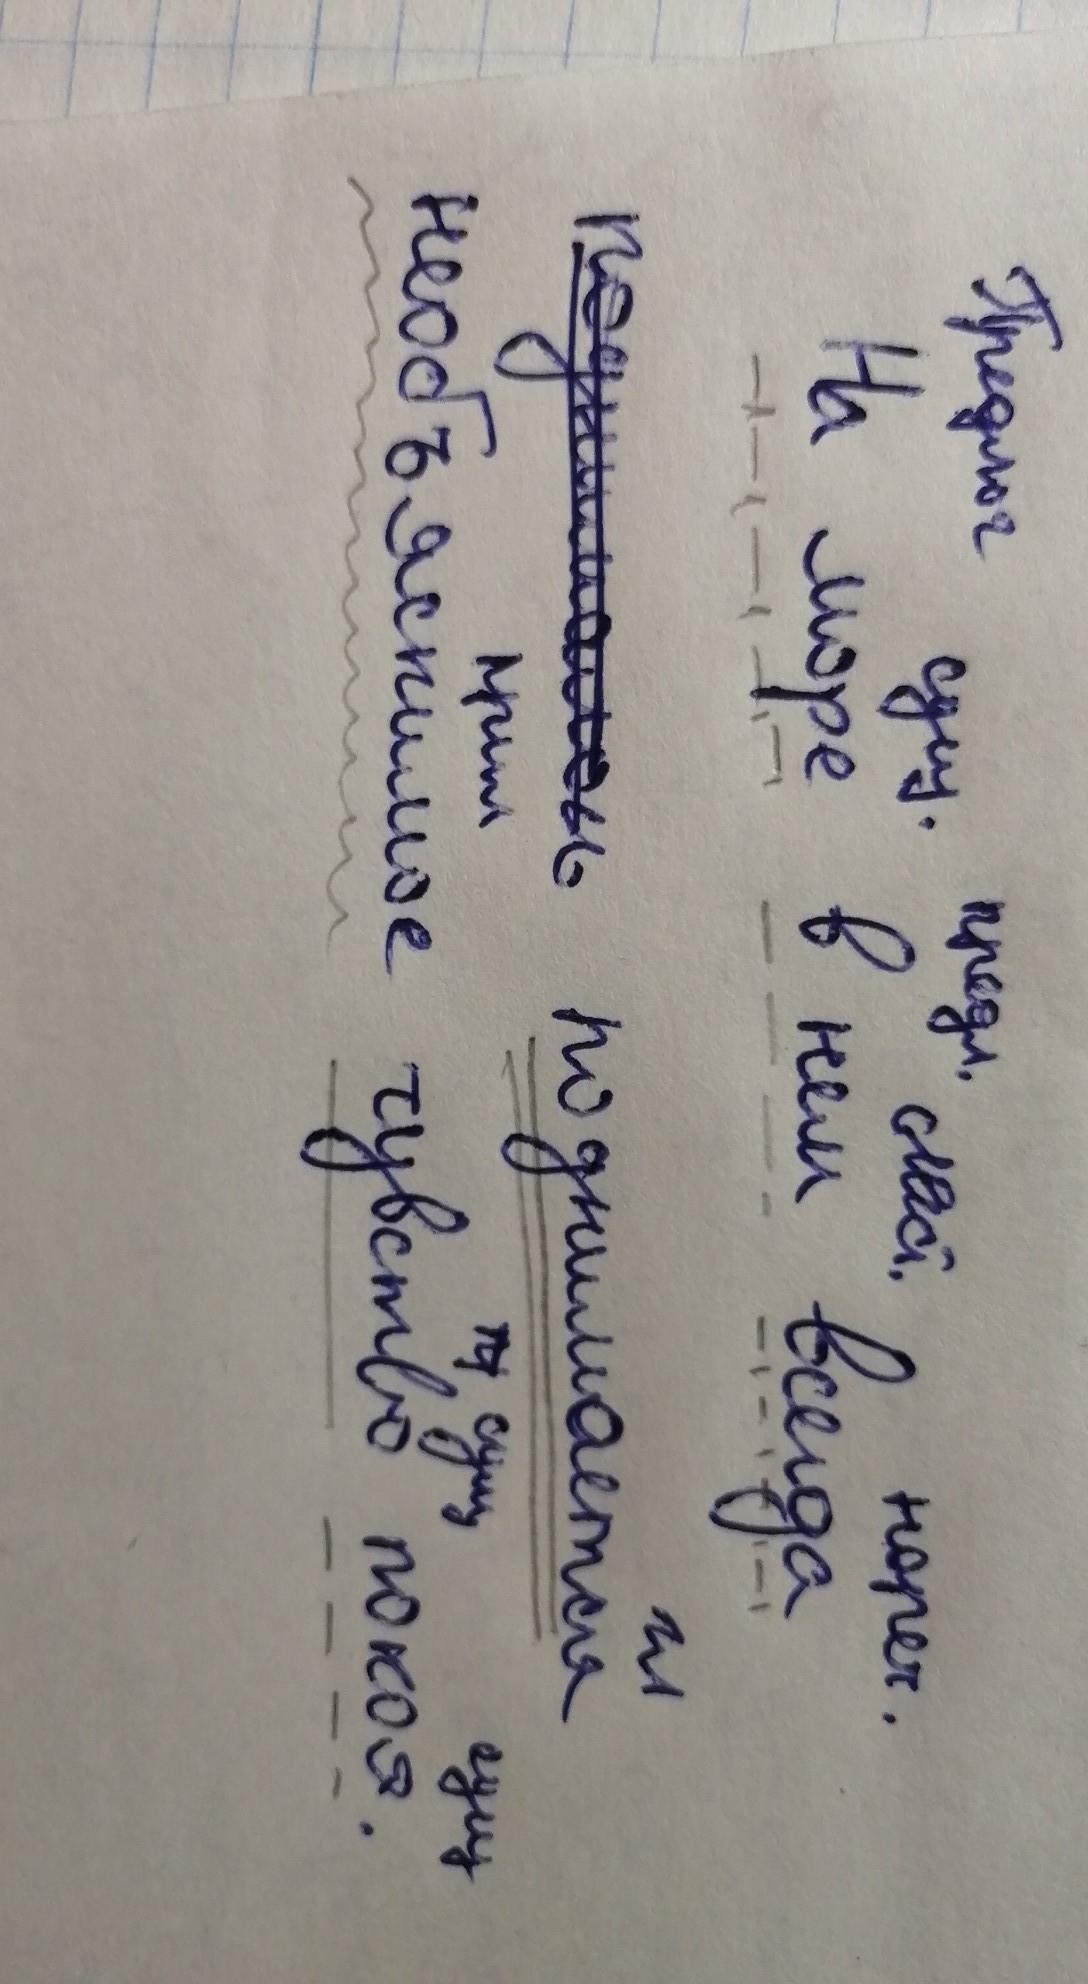 Предлог сущ. предл. мест. нареч.
На море в нем всегда
гл
поднималось поднимается
прил сущ сущ
необъяснимое чувство покоя.